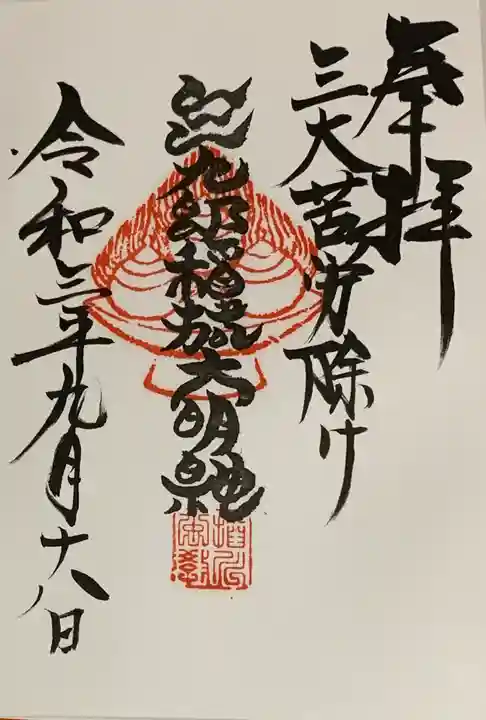 奉拝
三大苦労除け
三九郎稲荷大明神
令和三年九月十八日